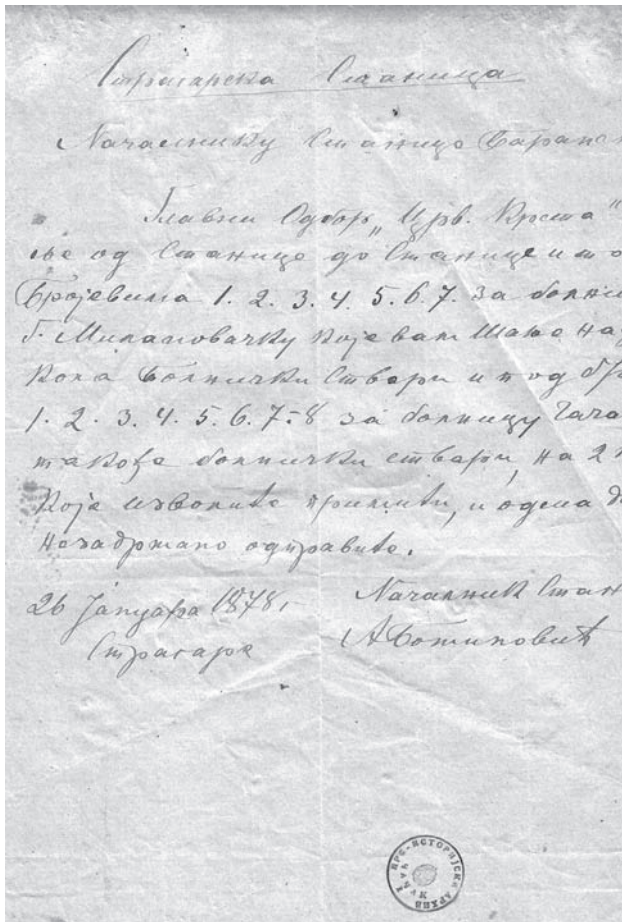 Страгарска Станица
Началнику Станице Баранс
Главни Одбор „Црв. Крста“
ље од Станице до Станице и то
Бројевима 1. 2. 3. 4. 5. 6. 7. за болни
Г. Милановачку које вам шаље на
кола болнички ствари и под бр
1. 2. 3. 4. 5. 6. 7. 8 за болницу Чача
такође болнички ствари, на 2 к
које изволите примити, и одма д
незадржано одправите.
26 Јануара 1878,
Страгаре
Началник Стан
ИСТОРИЈСКИ АРХИВ